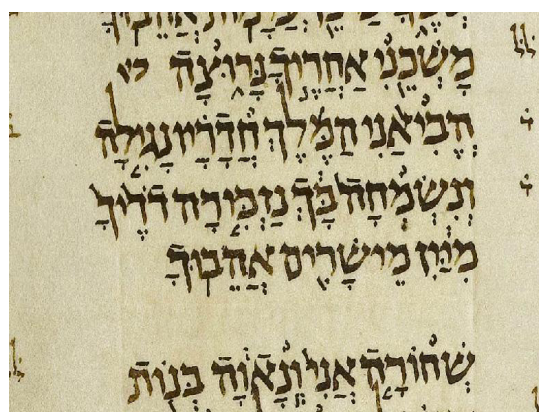 מָשְׁכֵ֖נִי אַחֲרֶ֣יךָ נָּר֑וּצָה
הֱבִיאַ֨נִי הַמֶּ֜לֶךְ חֲדָרָ֗יו נָגִ֤ילָה
וְנִשְׂמְחָה֙ בָּ֔ךְ נַזְכִּ֤ירָה דֹדֶ֙יךָ֙
מִיַּ֔יִן מֵישָׁרִ֖ים אֲהֵבֽוּךָ׃
שְׁחוֹרָ֤ה אֲנִי֙ וְֽנָאוָ֔ה בְּנ֖וֹת